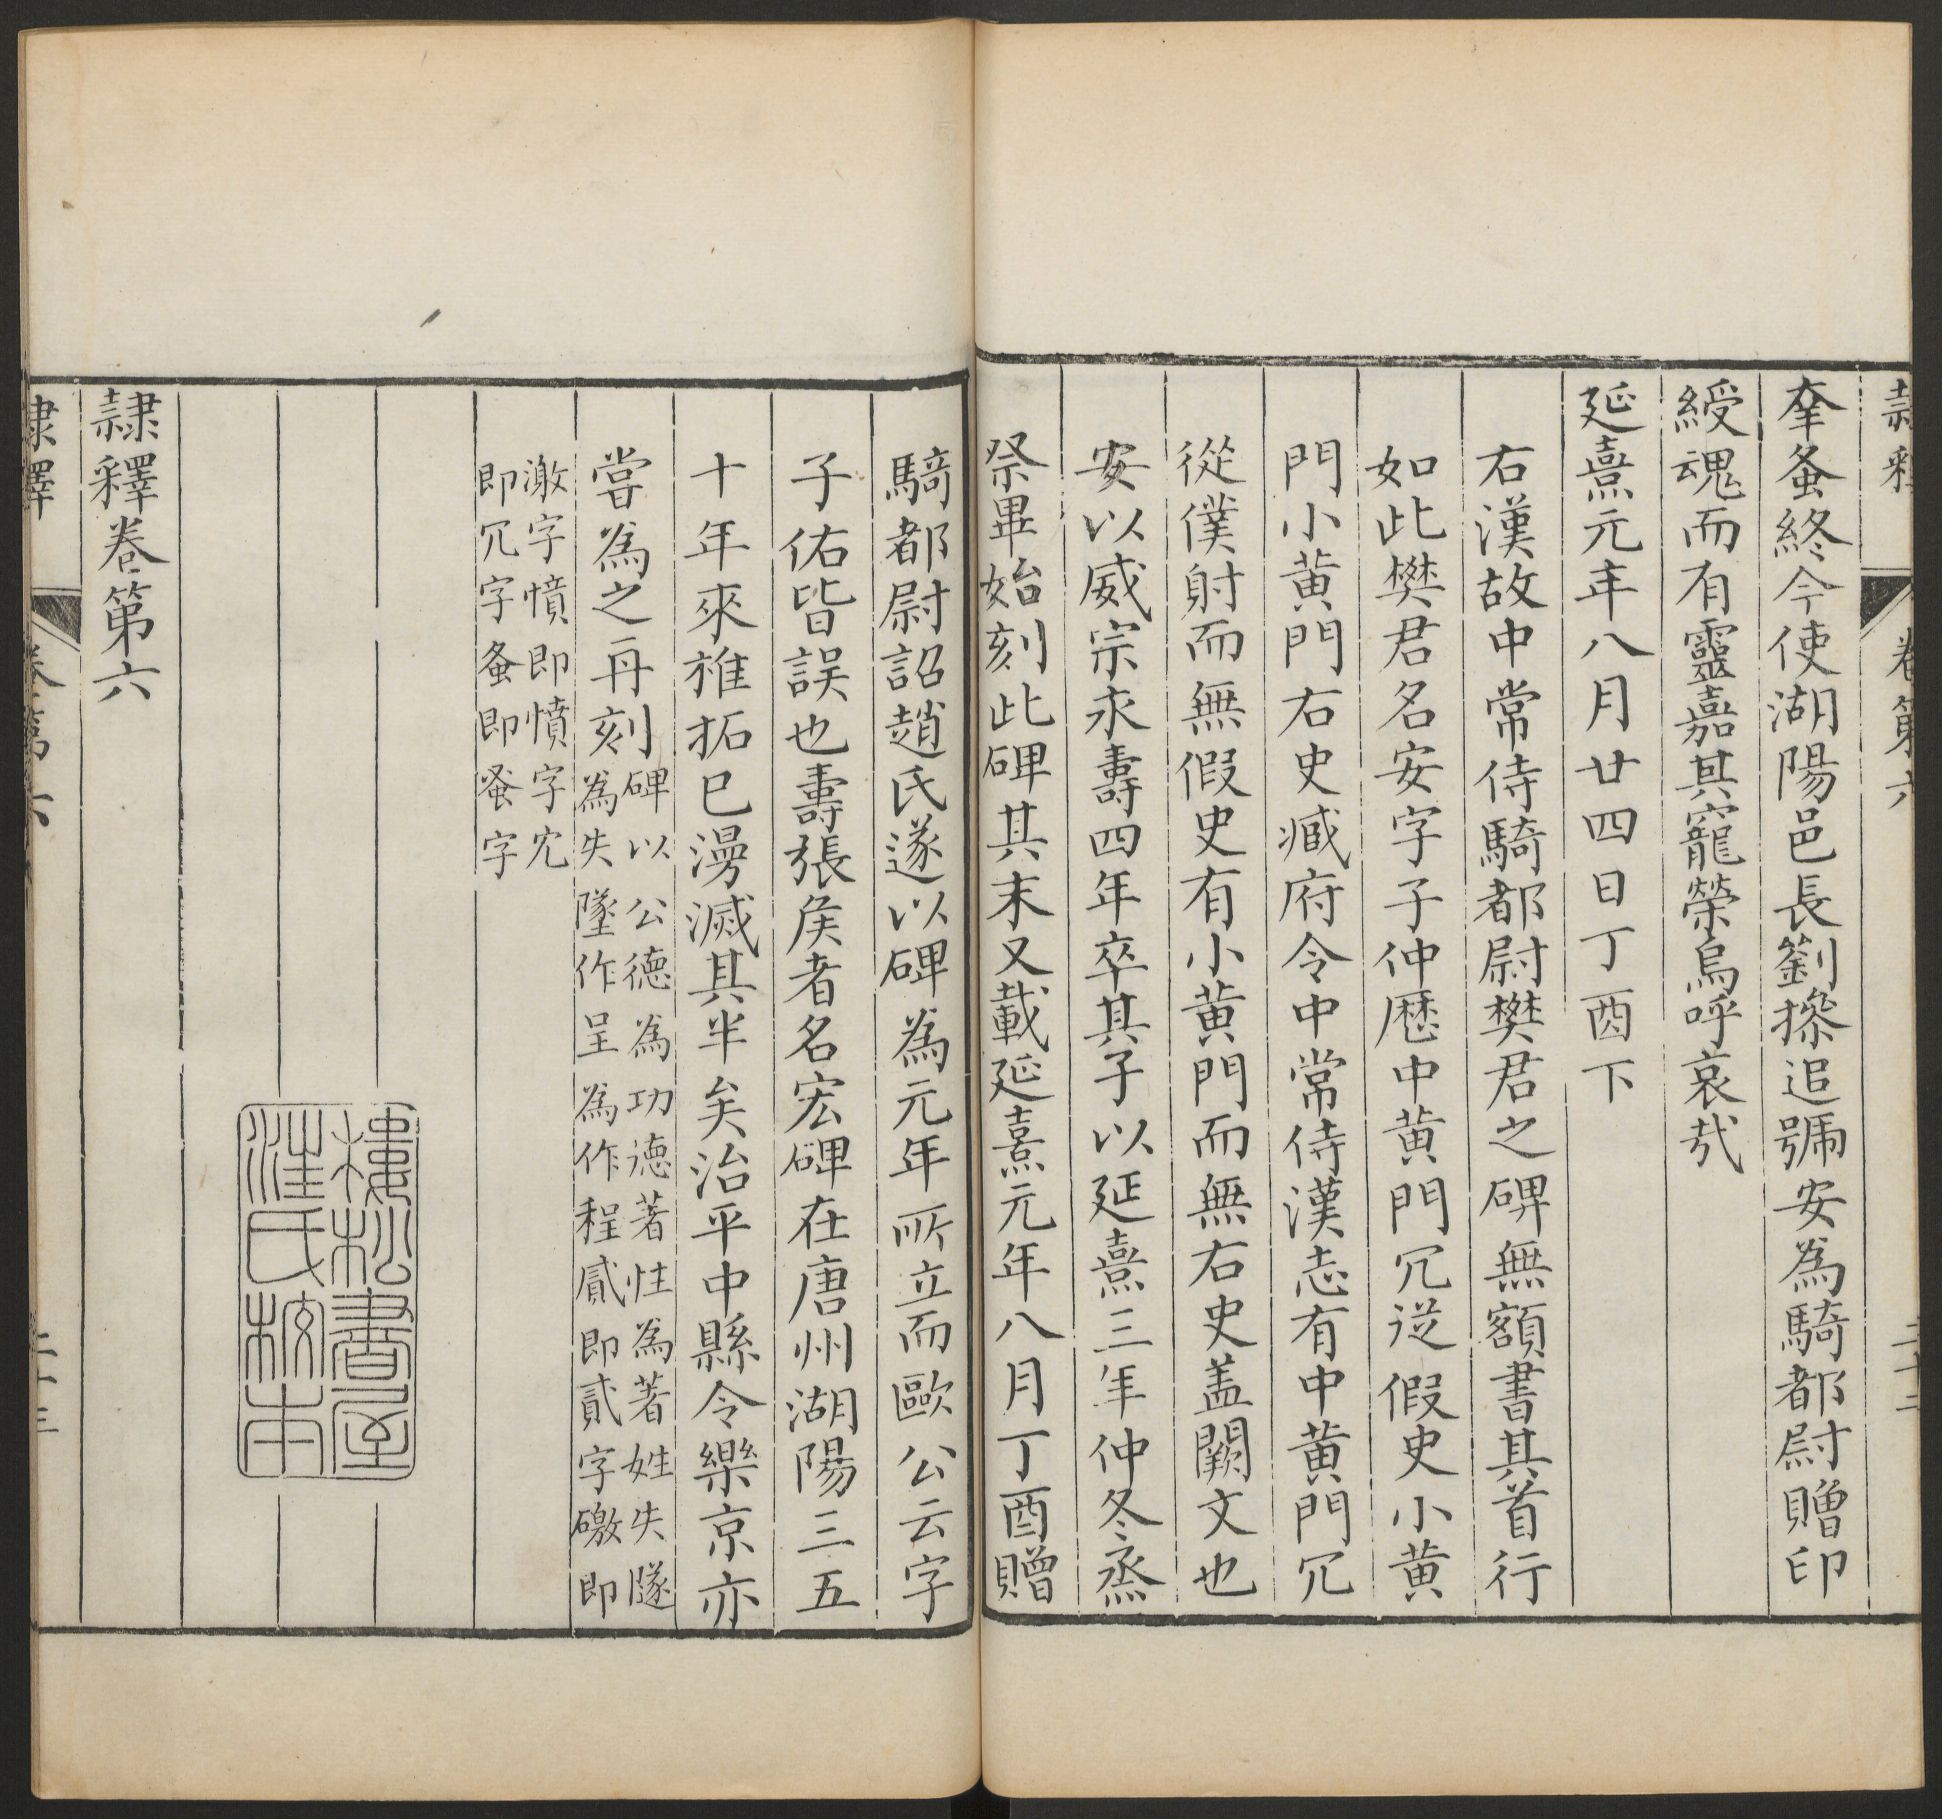 隸釋 卷第六 二十二
夆蚤終今使湖陽邑長劉摻追號安為騎都尉贈印
綬魂而有靈嘉其寵榮烏呼哀㢤
延熹元年八月廿四日丁酉下
右漢故中常侍騎都尉樊君之碑無額書其首行
如此樊君名安字子仲歷中黃門冗從假史小黃
門小黃門右史臧府令中常侍漢志有中黃門冗
從僕射而無假史有小黃門而無右史盖闕文也
安以威宗永壽四年卒其子以延熹三年仲冬烝
祭畢始刻此碑其末又載延熹元年八月丁酉贈
騎都尉詔趙氏遂以碑為元年所立而歐公云字
子佑皆誤也壽張侯者名宏碑在唐州湖陽三五
十年來椎拓已漫滅其半矣治平中縣令樂京亦
嘗為之再刻碑以公德為功德著性為著姓失隧
為失墜作呈為作程貳即貳字礉即
激字憤即憤字冘
即冗字蚤即蚤字
隸釋卷第六
樓松書屋
汪氏校本
隸釋 卷第六 二十三